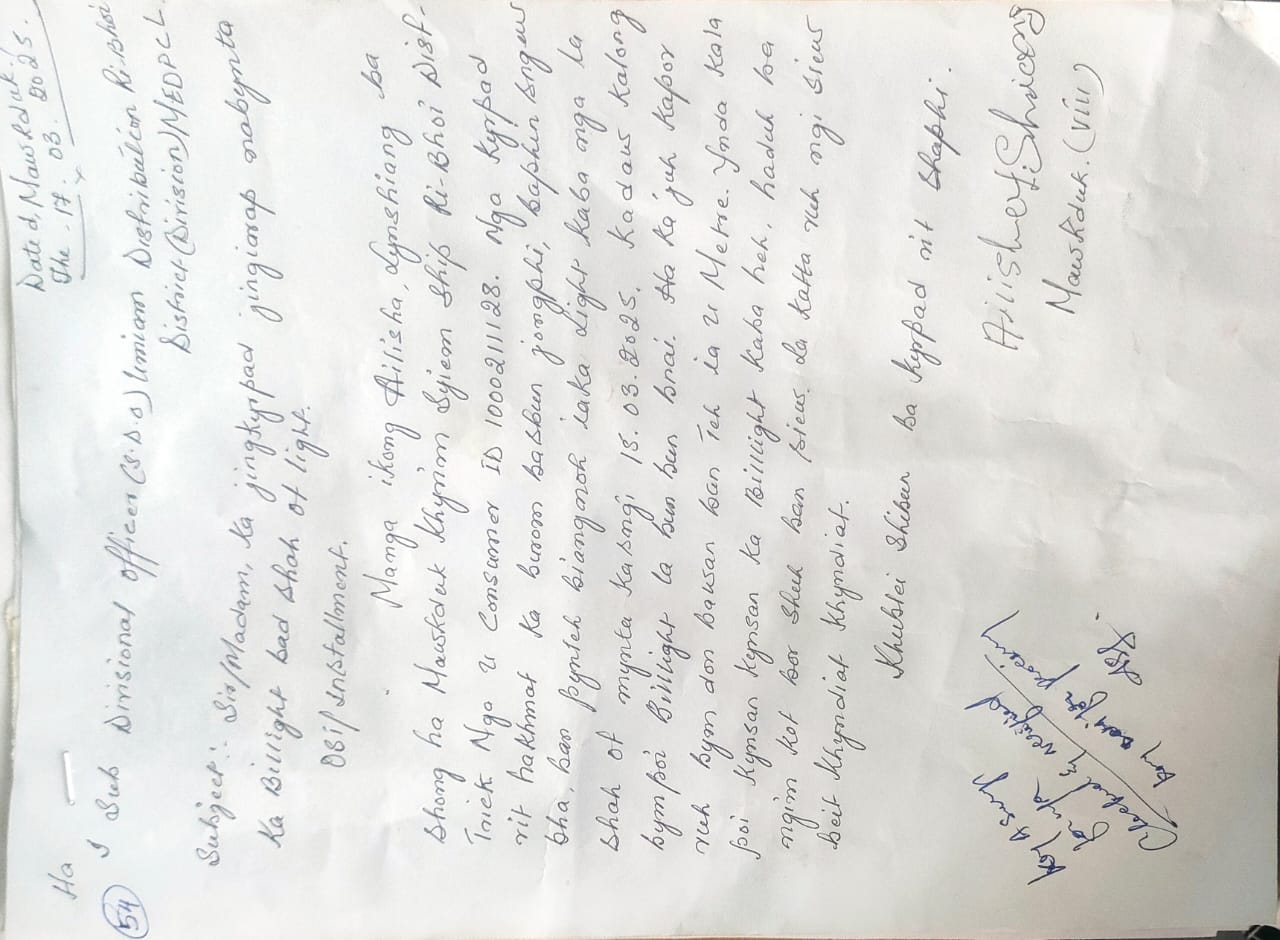 Dated, Mawkduk.
The. 17. 03. 2025.
Ha
54
I Sub Divisional Officer (S.D.O) Umiam Distribution Ri-Bhoi
District (Division) MEDPCL.
Subject:- Sir/Madam, Ka jingkyrpad jingiarap nabynta
Ka Billight bad Shah ot light.
OBif Installment.
Manga ikong Ailisha, Lynshiang ba
Shong ha Mawkduk Khyrim Syiem Ship Ri-Bhoi Dist-
Trick Nga u Consumer ID 100021128. Nga Kyrpad
rit hakhmat Ka burom babbun jongphi, baphin sngew
bha, ban pynteh biangnoh iaka Light kaba nga la
Shah ot mynta Kasngi 13.03.2025. Kadaw Kalong
bympoi Billight la bun bun bnai. Ha ka juh Kapor
ruh bym don bausan ban Teh ia u Metre. Ynda Kala
poi Kynsan Kynsan Ka Billlight Kaba heh, haduh ba
ngim kot bor Shuh ban siew. La Katta ruh ngi siew
beit Khyndiat Khyndiat.
Khublei Shibun ba Kyrpad rit Shaphi.
Mawkduk. (VIII)
Checked &
verified